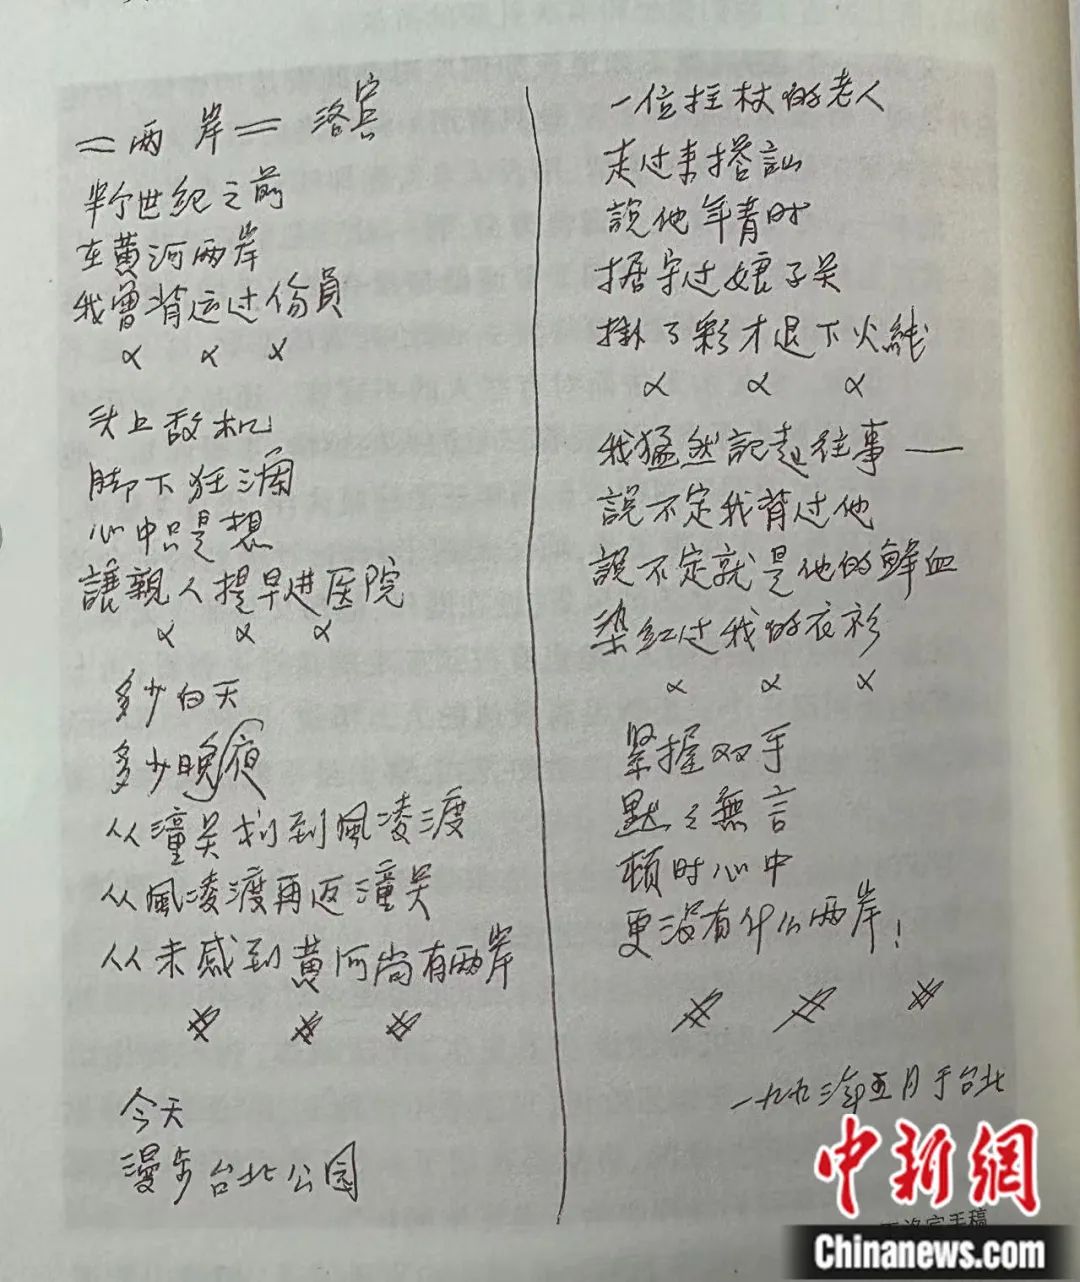 =两岸= 洛宾
半个世纪之前
在黄河两岸
我曾背运过伤員
α α α
头上敌机
脚下狂澜
心中只是想
讓親人提早进医院
α α α
多少白天
多少晚夜
从潼关划到風凌渡
从風凌渡再返潼关
从未感到黄河尚有两岸
今天
漫步台北公园
一位拄杖的老人
走过来搭訕
說他年青时
据守过娘子关
掛了彩才退下火綫
α α α
我猛然記起往事——
說不定我背过他
說不定就是他的鲜血
染红过我的衣衫
α α α
紧握双手
默々無言
顿时心中
更没有什么两岸!
一九九三年五月于台北
中新網
洛宾手稿
Chinanews.com